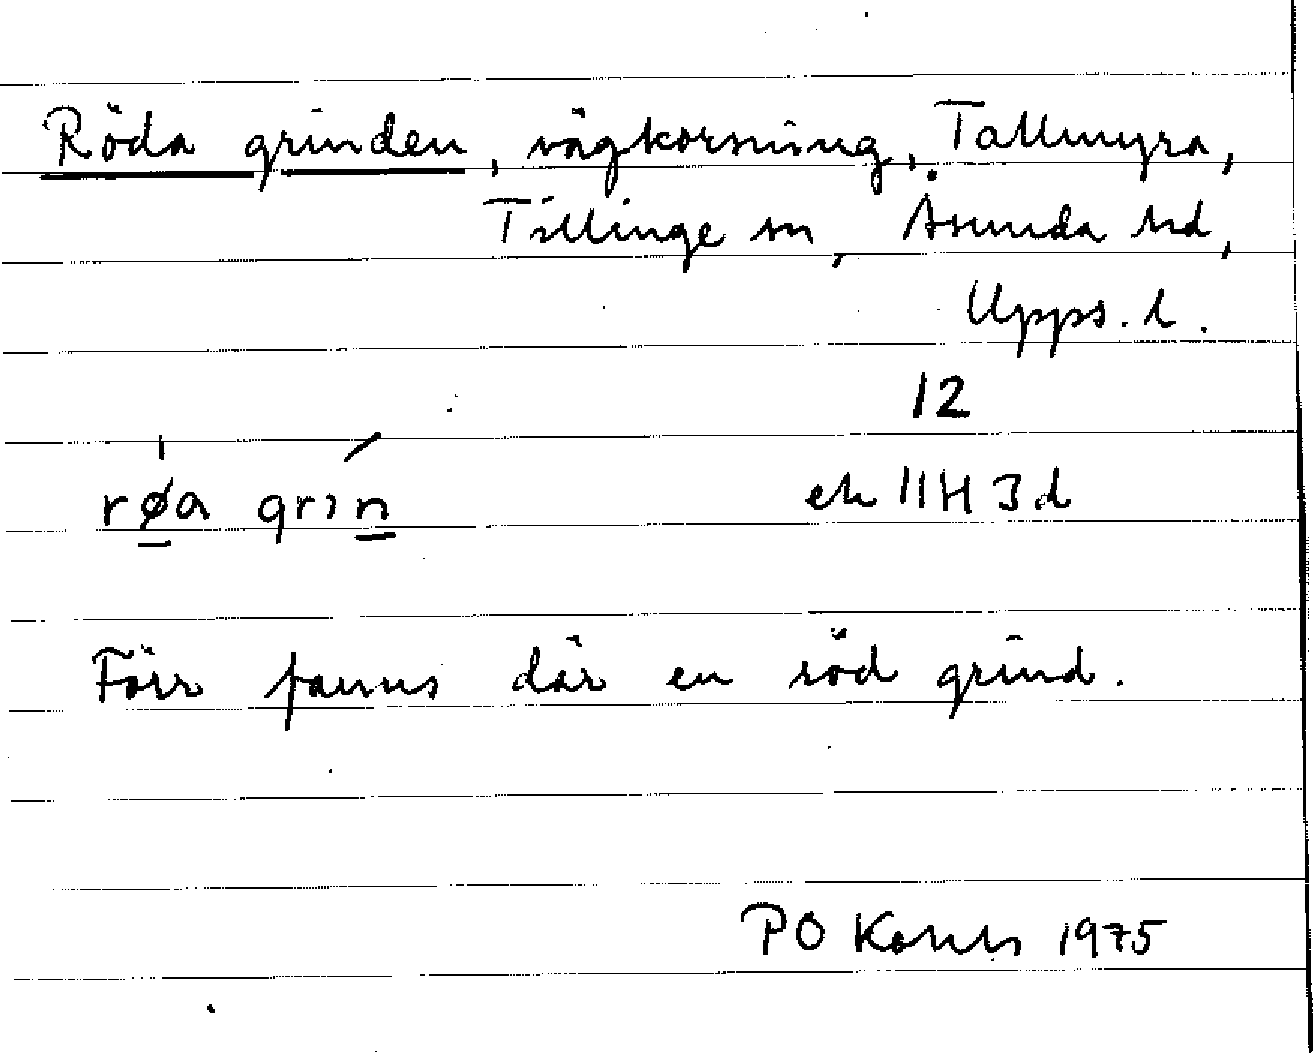 Röda grinden, vägkorsning, Tallmyra,
Tillinge sn, Åsunda hd,
Upps. l.
12
røa grin ek 11H 3d
Förr fanns där en röd grind.
PO 1975